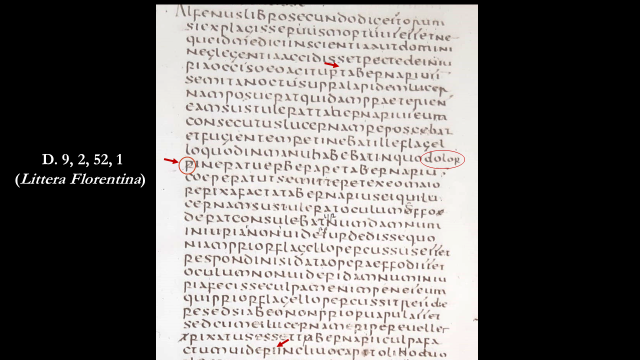 D. 9, 2, 52, 1
(Littera Florentina)
ALFENUSLIBROSECUNDODIGESTORUM
SIEXPLAGISSERUUSMORTUUSESSETNE
QUEIDMEDICIINSCIENTIAAUTDOMINI
NEGLEGENTIAACCIDISSETRECTEDEINIU
RIAOCCISOEOAGITURTABERNARIUSI
SEMITANOCTUSUPRALAPIDEMLUCER
NAMPOSUERATQUIDAMPRAETERIEN
EAMSUSTULERATTABERNARIUSEUM
CONSECUTUSLUCERNAMREPOSCEBAT
ETFUGIENTEMRETINEBATILLEFLAGEL
LOQUODINMANUHABEBATINQUODOLOR
RINERATUERBERARETABERNARIU
COEPERATUTSEMITTERETEXEOMAIO
RERIXAFACTATABERNARIUSEIQUILU
CERNAMSUSTULERATOCULUMEFFOE
DERATCONSULEBATNUMDAMNUM
INIURIANONUIDETURDEDISSEQUO
NIAMPRIORFLAGELLOPERCUSSUSESSET
RESPONDINISIDATAOPERAEFFODISSET
OCULUMNONUIDERIDAMNUMINIU
RIAFECISSECULPAMENIMPENESEUM
QUIPRIORFLAGELLOPERCUSSITRESIDE
RESEDSIABEONONPRIORUAPULASSET
SEDCUMEILUCERNAMERIPEREUELLET
RIXATUSESSETTABERNARIICULPAFA
CTUMUIDERIINCLIUOCAPITOLINODUO